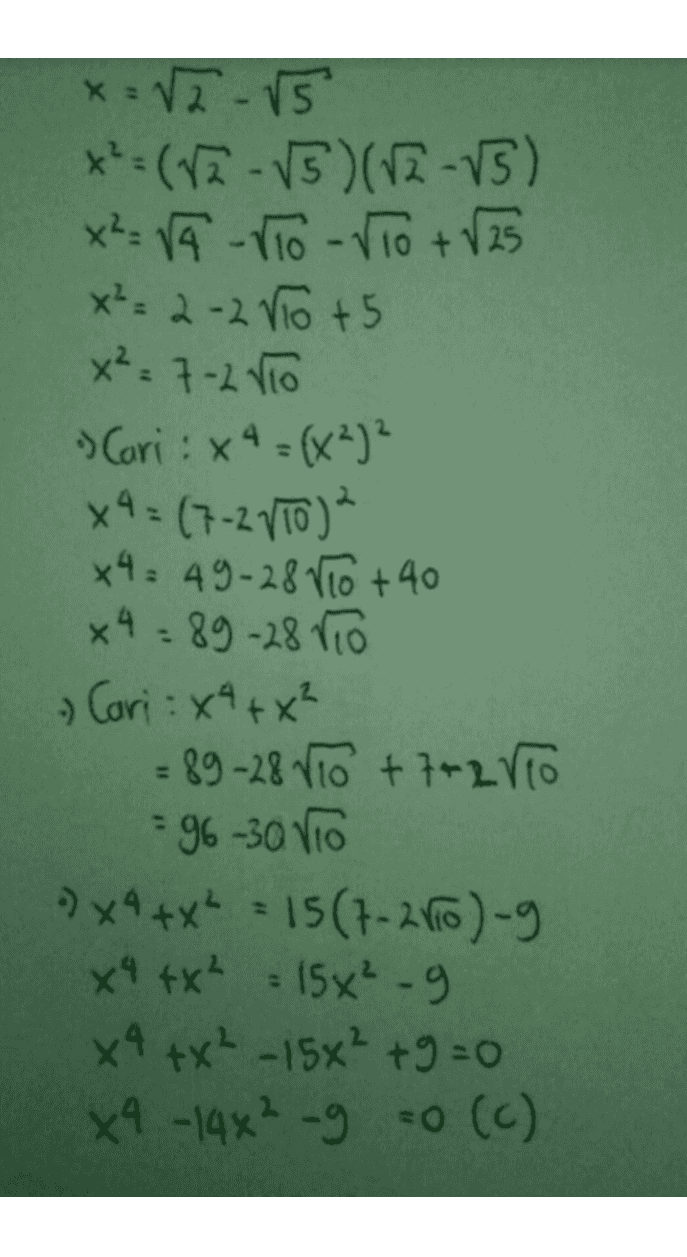 x = √2 - √5
x² = (√2 - √5)(√2 - √5)
x² = √4 - √10 - √10 + √25
x² = 2 - 2√10 + 5
x² = 7 - 2√10
•) Cari : x⁴ = (x²)²
x⁴ = (7 - 2√10)²
x⁴ = 49 - 28√10 + 40
x⁴ = 89 - 28√10
•) Cari : x⁴ + x²
= 89 - 28√10 + 7 - 2√10
= 96 - 30√10
•) x⁴ + x² = 15(7 - 2√10) - 9
x⁴ + x² = 15x² - 9
x⁴ + x² - 15x² + 9 = 0
x⁴ - 14x² - 9 = 0 (c)